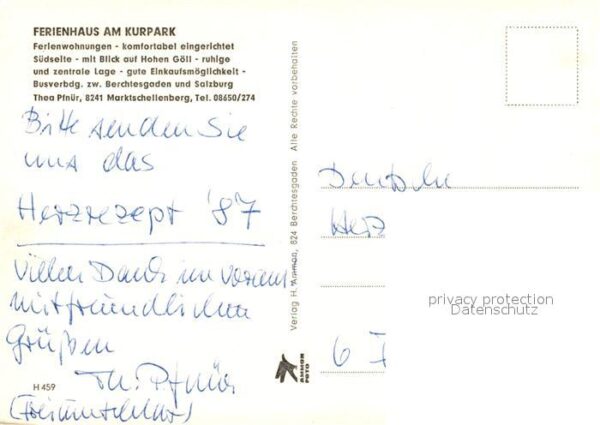 FERIENHAUS AM KURPARK
Ferienwohnungen - komfortabel eingerichtet
Südseite - mit Blick auf Hohen Göll - ruhige
und zentrale Lage - gute Einkaufsmöglichkeit -
Busverbdg. zw. Berchtesgaden und Salzburg
Thea Pfnür, 8241 Marktschellenberg, Tel. 08650/274
Bitte senden Sie
uns das
Herzrezept '87
Vielen Dank im voraus
mit freundlichen
Grüßen
Th. Pfnür
H 459
Verlag H. Ammon, 824 Berchtesgaden Alle Rechte vorbehalten
AMMON
FOTO
Deutsche
Herz
6 F
privacy protection
Datenschutz